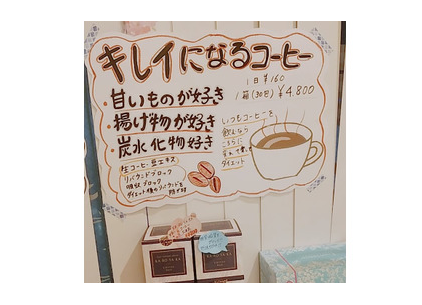 キレイになるコーヒー
1日¥160
1箱(30日)¥4,800
・甘いものが好き
・揚げ物が好き
・炭水化物好き
いつもコーヒーを
飲むなら
こちらに
ダイエット
生コーヒー豆エキス
リバウンドブロック
吸収ブロック
ダイエット後のリバウンドを
防ぎます